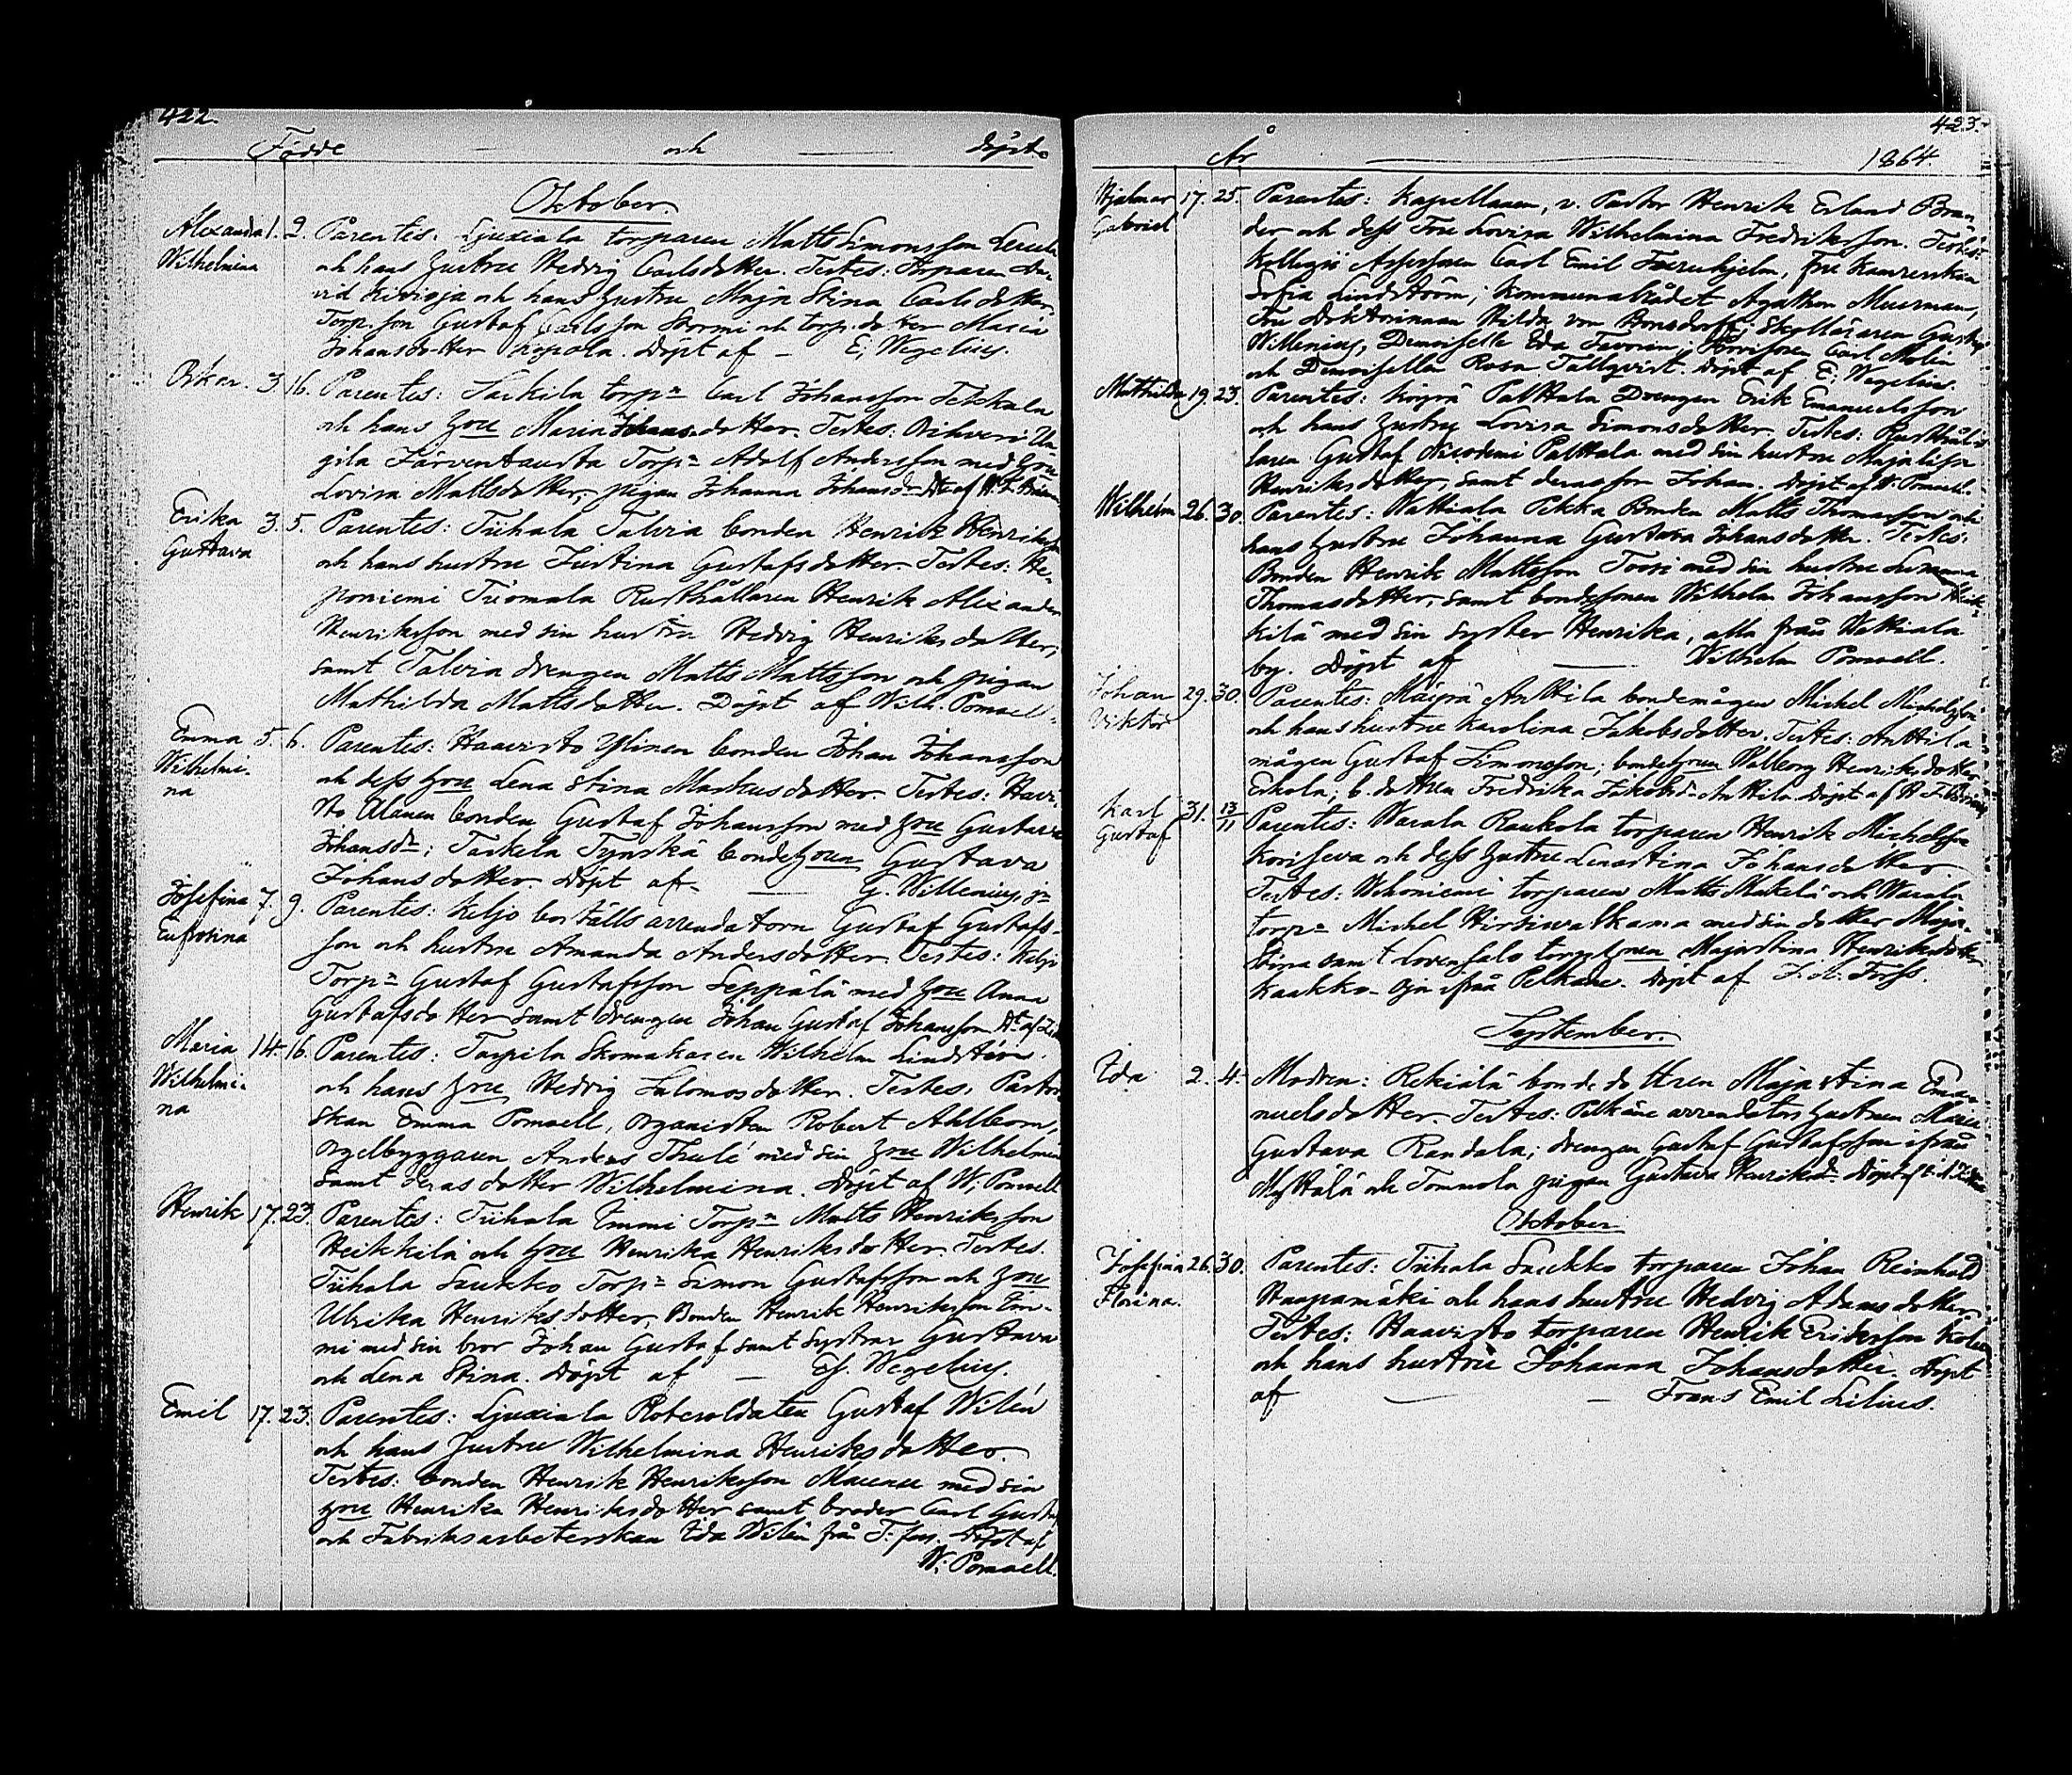 422.
Födde — och — döpte
Oktober.
Alexandra 1. 2. Parentes: Liuxiala torparen Matts Simonsson
Wilhelmina och hans hustru Hedvig Carlsdotter. Testes: Torparen Da-
vid Kivioja och hans hustru Maja Stina Carlsdotter,
Torp. son Gustaf Carlsson Stormi och torp. dotter Maria
Johansdotter Kepola. Döpt af — E. Wegelius.
Oskar. 3. 16. Parentes: Torpn Carl Johansson
och hans hru Maria Johansdotter. Testes: Un-
gila Järventausta Torpn Adolf Andersson med hru
Lovisa Mattsdotter; pigan Johanna Johansdr
Erika 3. 5. Parentes: Tiihala Talvia bonden Henrik Henriksson
Gustava och hans hustru Justina Gustafsdotter. Testes: He-
poniemi Tuomala Rusthållaren Henrik Alexander
Henriksson med sin hustru Hedvig Henriksdotter,
samt Talvia drengen Matts Mattsson och pigan
Mathilda Mattsdotter. Döpt af Wilh. Ponsell.
Emma 5. 6. Parentes: Haavisto Ylinen bonden Johan Johansson
Wilhelmi- och dess hru Lena Stina Markusdotter. Testes: Haavi-
na sto Alanen bonden Gustaf Johansson med hru Gustava
Johansdr; bondehrun Gustava
Johansdotter. Döpt af — G. Willenius, jr
Josefina 7. 9. Parentes: Keljo boställs arrendatorn Gustaf Gustafs-
Eufrosina son och hustru Amanda Andersdotter. Testes: Keljo
Torpn Gustaf Gustafsson Seppälä med hru Anna
Gustafsdotter samt drengen Johan Gustaf Johansson
Maria 14. 16. Parentes: Tarpila Skomakaren Wilhelm Lindström
Wilhelmi- och hans hru Hedvig Salomosdotter. Testes: Pastor-
na skan Emma Ponsell, organisten Robert Ahlbom,
orgelbyggaren Anders Thulé med sin hru Wilhelmina
samt deras dotter Wilhelmina. Döpt af W. Ponsell
Henrik 17. 23. Parentes: Tiihala Emmi Torpn Matts Henriksson
Heikkilä och hru Henrika Henriksdotter. Testes.
Tiihala Saukko Torpn Simon Gustafsson och hru
Ulrika Henriksdotter, Bonden Henrik Henriksson Em-
mi med sin bror Johan Gustaf samt systrar Gustava
och Lena Stina. Döpt af — Wegelius.
Emil 17. 23. Parentes: Liuxiala Rotesoldaten Gustaf Wilén
och hans hustru Wilhelmina Henriksdotter.
Testes: bonden Henrik Henriksson med sin
hru Henrika Henriksdotter samt broder Carl Gustaf
och Fabriksarbeterskan Ida Wilén från T:fors. Döpt af
W. Ponsell.
423.
År — 1864.
Hjalmar 17. 25. Parentes: Kapellanen, v. Pastor Henrik Erland Bran-
Gabriel der och dess Fru Lovisa Wilhelmina Fredriksson. Testes:
Kollegii Assessoren Carl Emil Ferrhjelm, fru Kamrerskan
Sofia Lindström; Kommunalrådet Agathon Meurman,
Fru Doktorinnan Hilda von Bonsdorff; Skolläraren Gustaf
Willenius, Demoiselle Ida Favorin; Provisoren Carl Molin
och Demoisellen Rosa Tallqvist. Döpt af E. Wegelius.
Mathilda 19. 23. Parentes: Palttala Drengen Erik Emanuelsson
och hans hustru Lovisa Simonsdotter. Testes: Rusthål-
laren Gustaf Nicodemi Palttala med sin hustru Maja Lisa
Henriksdotter, samt deras son Johan. Döpt af W. Ponsell.
Wilhelm 26. 30. Parentes: Wattiala Pekka Bonden Matts Thomasson och
hans hustru Johanna Gustava Johansdotter. Testes:
Bonden Henrik Mattsson Toori med sin hustru Susanna
Thomasdotter, samt bondesonen Wilhelm Johansson Heik-
kilä med sin syster Henrika, alla från Wattiala
by. Döpt af — Wilhelm Ponsell.
Johan 29. 30. Parentes: Anttila bondemågen Michel Michelsson
Viktor och hans hustru Karolina Jakobsdotter. Testes: Anttila
mågen Gustaf Simonsson; bondehrun Walborg Henriksdotter
Erkola; b. dottren Fredrika Jakobsdr Anttila. Döpt af
Karl 31. 13/11 Parentes: Warala Raukola torparen Henrik Michelsson
Gustaf och dess hustru Lenastina Johansdotter
Testes: Wehoniemi torparen Matts Mäkelä och Warala
torpn Michel Hirsiwalkama med sin dotter Maja
Stina samt torphrun Majastina Henriksdotter
Kaakko-oja ifrån Pelkäne. Döpt af Forss.
September.
Ida 2. 4. Modren: Rekiälä bondedottren Majastina Ema-
nuelsdotter. Testes: Pelkäne arrendators hustrun Maria
Gustava Randala; drengen Gustaf Gustafsson ifrån
och Tommola pigan Gustava Henriksdr
Oktober
Josefina 26. 30. Parentes: Tiihala Saukko torparen Johan Reinhold
Florina. Haapamäki och hans hustru Hedvig Adamsdotter
Testes: Haavisto torparen Henrik Eriksson
och hans hustru Johanna Johansdotter. Döpt
af — Frans Emil Lilius.